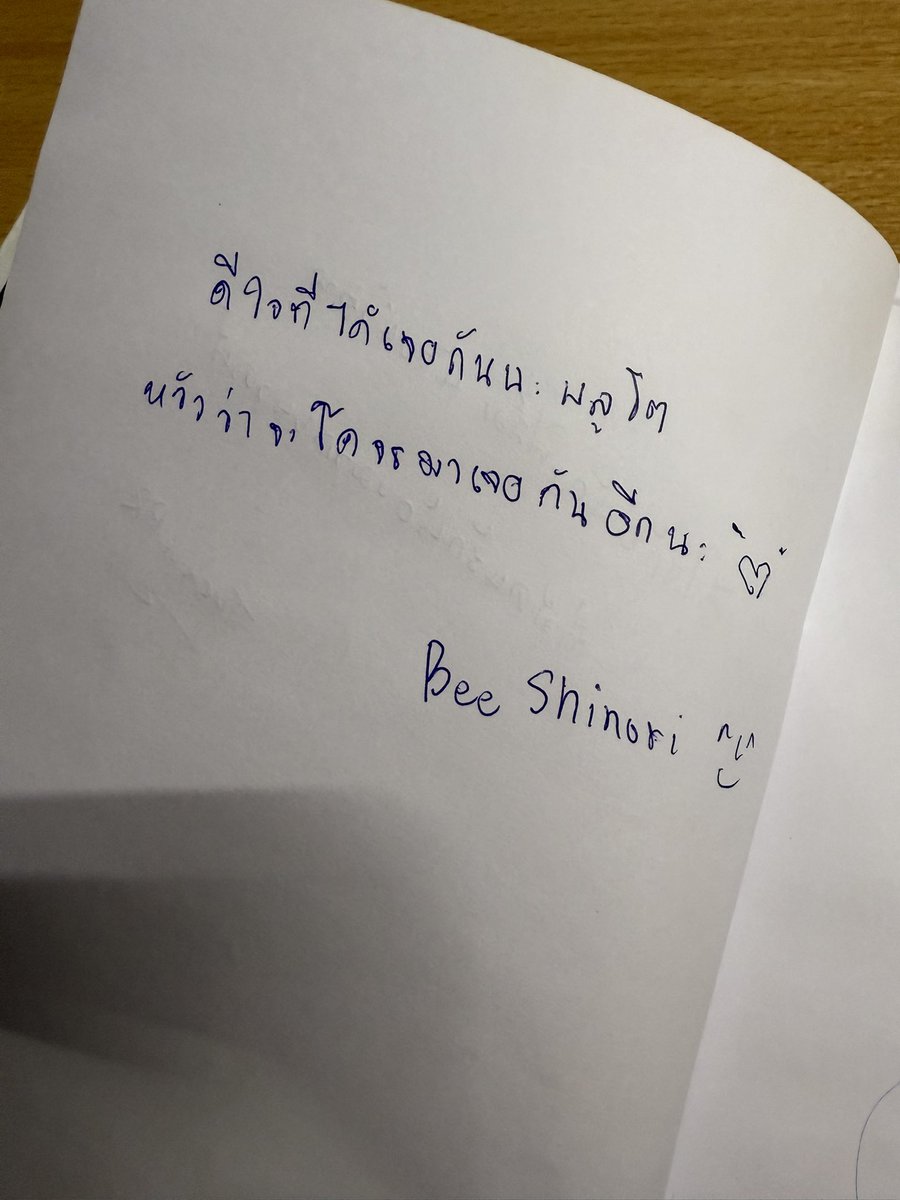 ดีใจที่ได้เจอกันนะ พลูโต
หวังว่าจะโคจรมาเจอกันอีกนะ
Bee Shinori